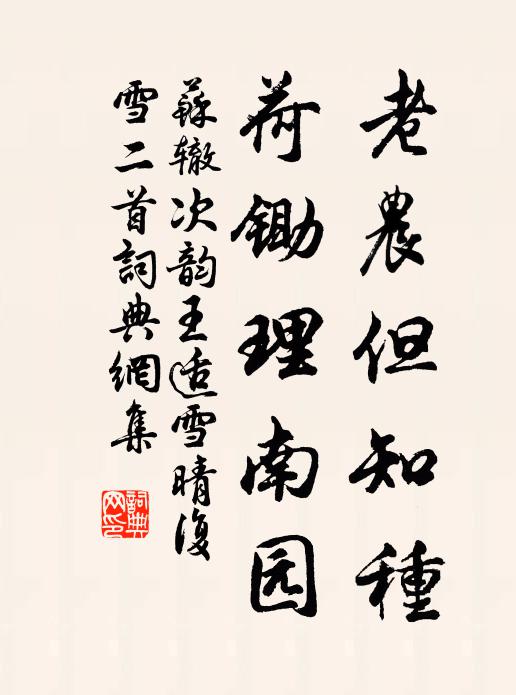 老農但知種
荷鋤理南园
蘇辙次韵王适雪晴復
雪二首詞典網集
詞典
网印